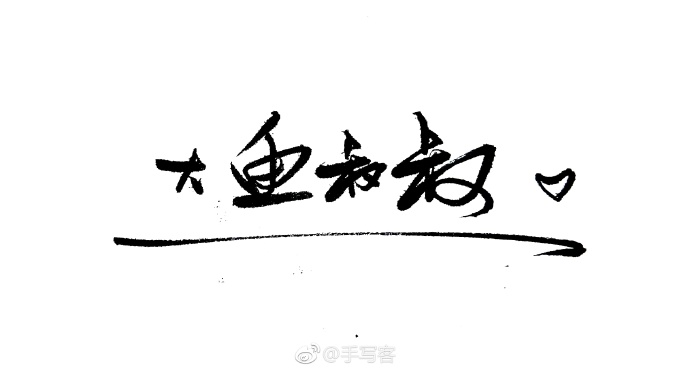 大鱼叔叔
@手写客